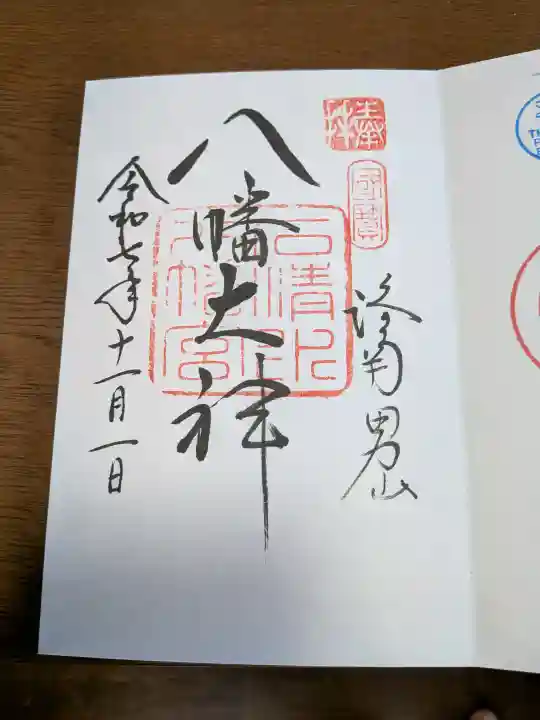 奉拝
國寶
洛南男山
八幡大神
石清水
八幡宮
令和七年十一月一日